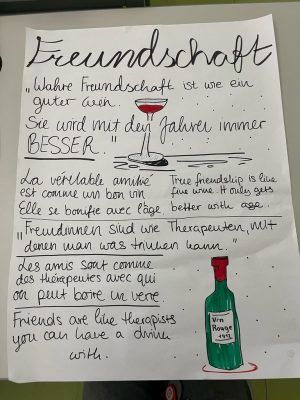 Freundschaft
„Wahre Freundschaft ist wie ein
guter Wein.
Sie wird mit den Jahren immer
BESSER"
La véritable amitié
est comme un bon vin
Elle se bonifie avec l'âge.
True friendship is like
fine wine. It only gets
better with age.
„Freundinnen sind wie Therapeuten, mit
denen man was trinken kann."
Les amis sont comme
des thérapeutes avec qui
on peut boire un verre
Friends are like therapists
you can have a drink
with.
Vin
Rouge